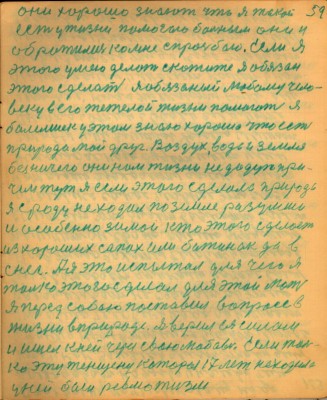 они хорошо знают что я такой 59
есть у жизни помогаю больным они и
обратились ко мне с прозьбою. Если я
этого умею делать скажите я обязан
этого сделать Я обязаный любому чело-
веку в его тяжелой жизни помогать Я
болел и к этому знаю хорошо что есть
природа мой друг. Воздух, вода и земля
без ничего они нам жизнь не дадут при-
чем тут я если этого сделаеш природы
Я сроду не ходил по земле разутым
и особенно зимой Кто этого сделает
из хороших сапах или ботинах да в
снег. А я это испытал для чего я
только этого сделал для этой мет
Я перед собою поставил вопрос в
жизни в природе. Я верил своим
и шел к ней через свою любовь. Если толь-
ко эту женщину которая 17 лет не ходила
у ней был ревматизм